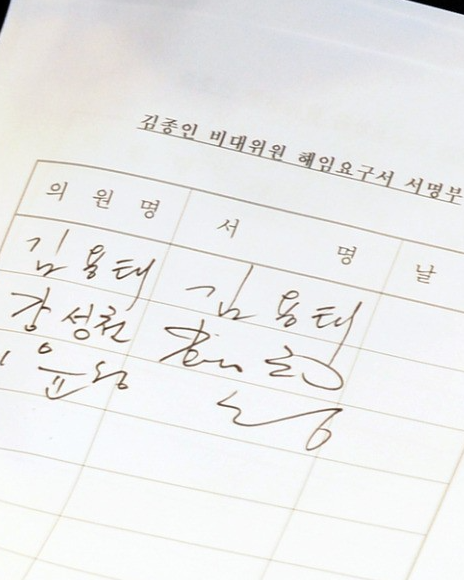 김종인 비대위원 해임요구서 서명부
의 원 명 서 명 날
김용태 김용태
강성천